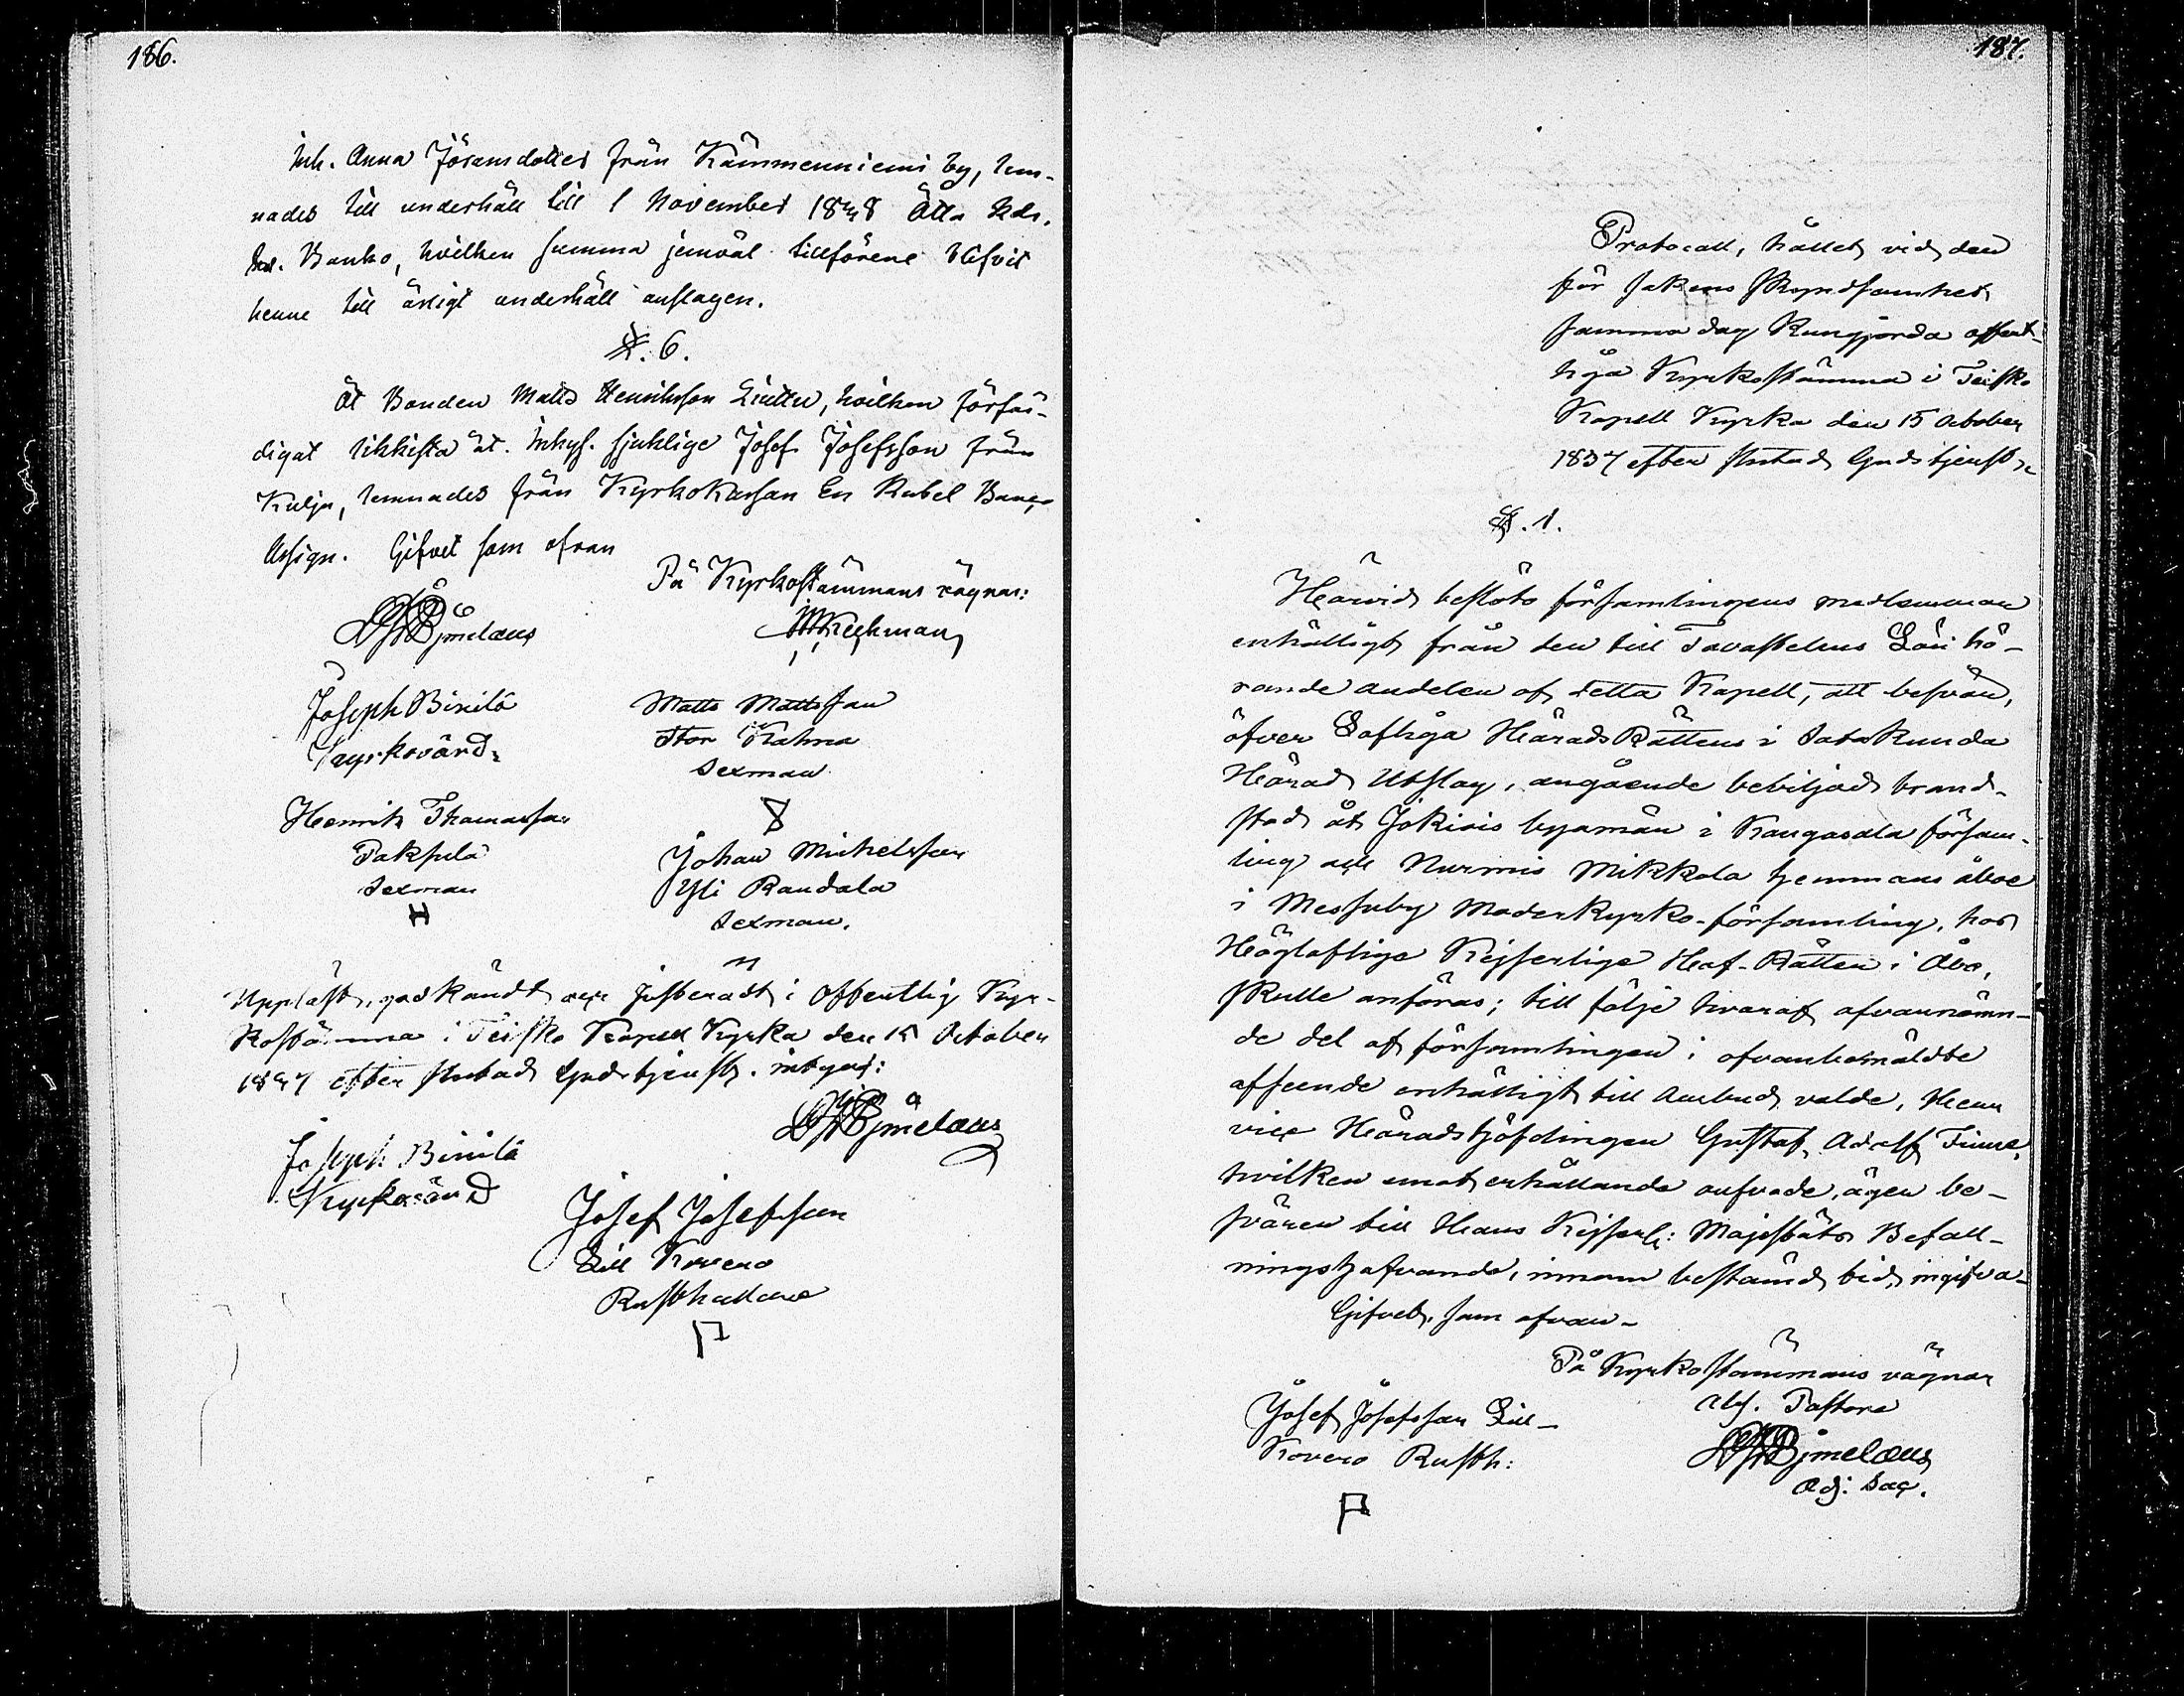 186.
Inh. Anna Jöransdotter från Kämmenniemi by, lem-
nades till underhåll till 1 November 1838 Åtta Rdr.
Banko, hvilken summa jemväl tillförene blifvit
henne till årligt underhåll anslagen.
§. 6.
Åt Bonden Matts Henriksson Liutu, hvilken förfär-
digat likkista åt Inhys. sjuklige Josef Josefsson från
Kulju, lemnades från KyrkoKassan En Rubel Banco
Assign. Gifvet som ofvan
På Kyrkostämmans vägnar:
Joseph Binilä
Kyrkovärd.
Matts Mattsson
Stor Kahma
Sexman
Henrik Thomasson
Pakkula
Sexman
Johan Michelsson
Yli Randala
Sexman.
Uppläst, godkändt och justeradt i offentlig Kyr-
kostämma i Teisko Kapell Kyrka den 15 October
1837 efter slutad Gudstjenst, intygar:
Joseph Binilä
Kyrkovärd
Josef Josefsson
Lill Kovero
Rusthållare
187.
Protocoll, hållet vid den
för sakens skyndsamhet
samma dag Kungjorda offent-
liga Kyrkostämma i Teisko
Kapell Kyrka den 15 October
1837 efter slutad Gudstjenst
§. 1.
Härvid beslöto församlingens medlemmar
enhälligt från den till Tavastehus Län hö-
rande andelen af detta Kapell, att besvär,
öfver Lofliga HäradsRättens i Satakunda
Härad Utslag, angående beviljad brand-
stod åt Jokiois byamän i Kangasala försam-
ling och Nurmis Mikkola hemmans åboe
i Messuby Moderkyrko-församling, hos
Högloflige Kejserlige Hof-Rätten i Åbo,
skulle anföras; till följe hvaraf ofvannämn-
de del af församlingen i ofvanbemäldte
afseende enhälligt till Ombud valde, Herr
vice Häradshöfdingen Gustaf Adolf Finne,
hvilken emot erhållande arfvode, äger be-
svären till Hans Kejserl: Majestäts Befall-
ningshafvande, innom bestämd tid, ingifva.
Gifvet, som ofvan-
På Kyrkostämmans vägnar
Abs. Pastore
Adj: Sac.
Josef Josefsson Lill-
Kovero Rusth: